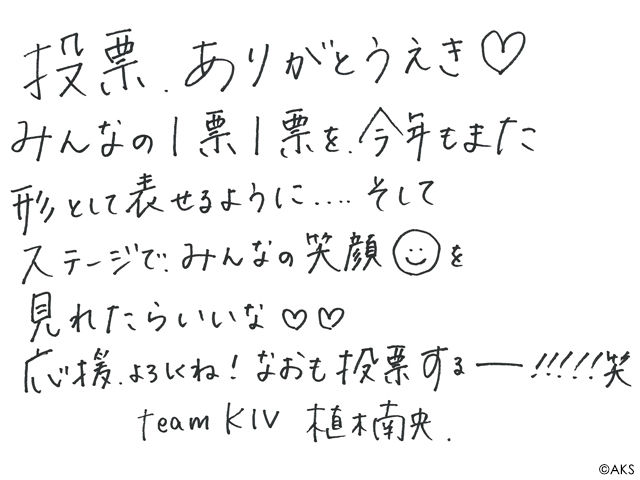 投票、ありがとうえき♡
みんなの1票1票を、今年もまた
形として表せるように.... そして
ステージで、みんなの笑顔☺を
見れたらいいな♡♡
応援、よろしくね！なおも投票するー!!!!!笑
team KIV 植木南央.
©AKS